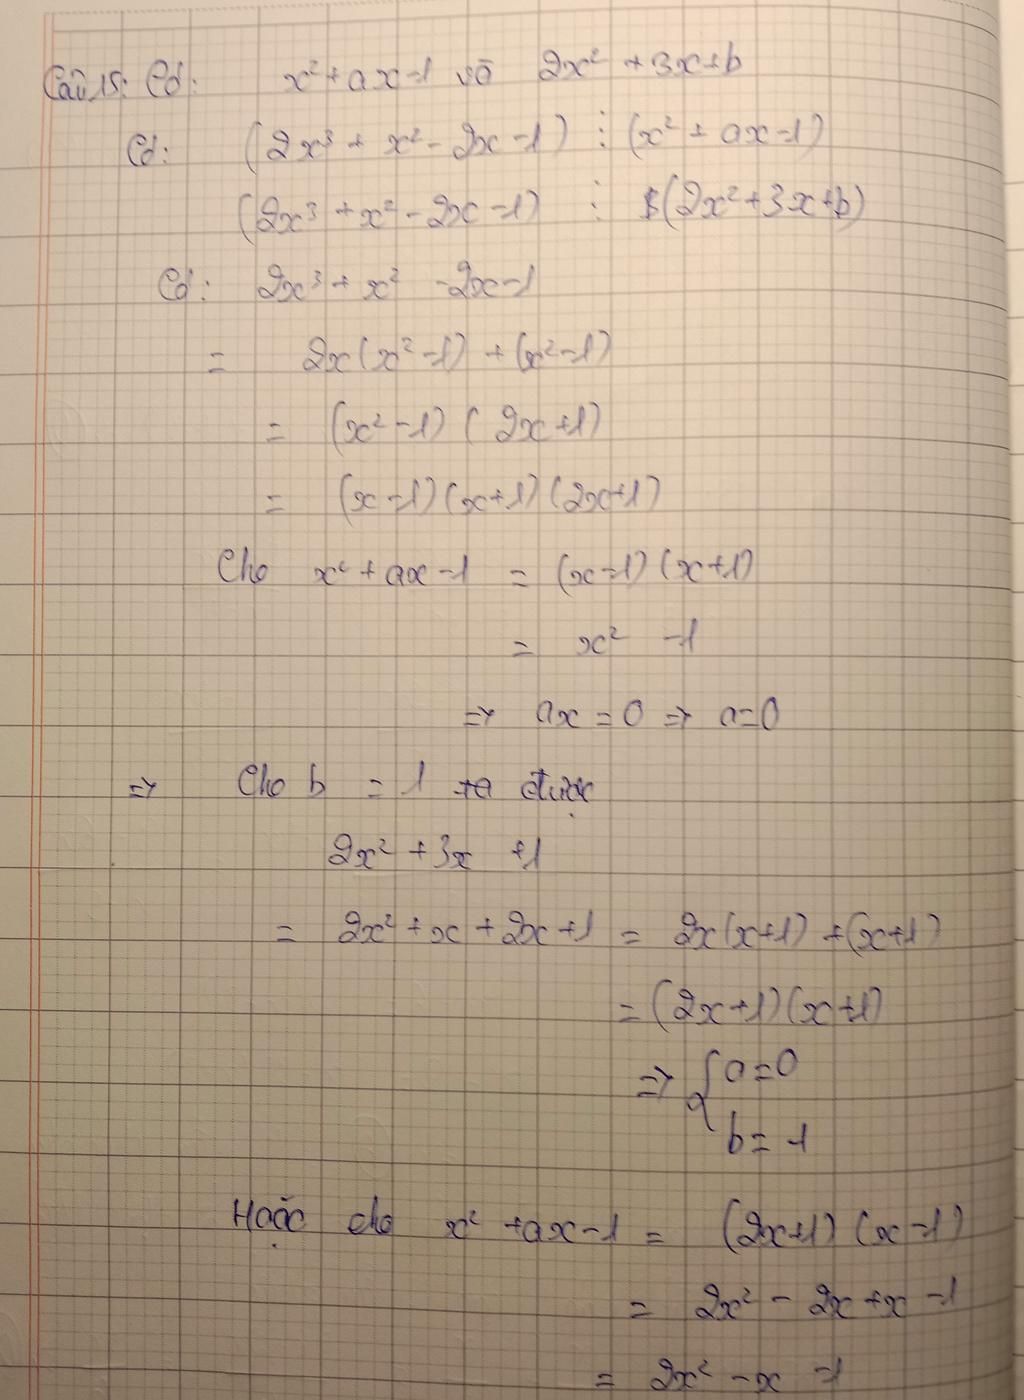 Câu 15: Có: x² + ax - 1 và 2x² + 3x + b
Có: (2x³ + x² - 2x - 1) ⋮ (x² + ax - 1)
(2x³ + x² - 2x - 1) ⋮ (2x² + 3x + b)
Có: 2x³ + x² - 2x - 1
= 2x(x² - 1) + (x² - 1)
= (x² - 1) (2x + 1)
= (x - 1) (x + 1) (2x + 1)
Cho x² + ax - 1 = (x - 1) (x + 1)
= x² - 1
=> ax = 0 => a = 0
=> Cho b = 1 ta được
2x² + 3x + 1
= 2x² + x + 2x + 1 = 2x(x + 1) + (x + 1)
= (2x + 1) (x + 1)
=> { a = 0
b = 1
Hoặc cho x² + ax - 1 = (2x + 1) (x - 1)
= 2x² - 2x + x - 1
= 2x² - x - 1